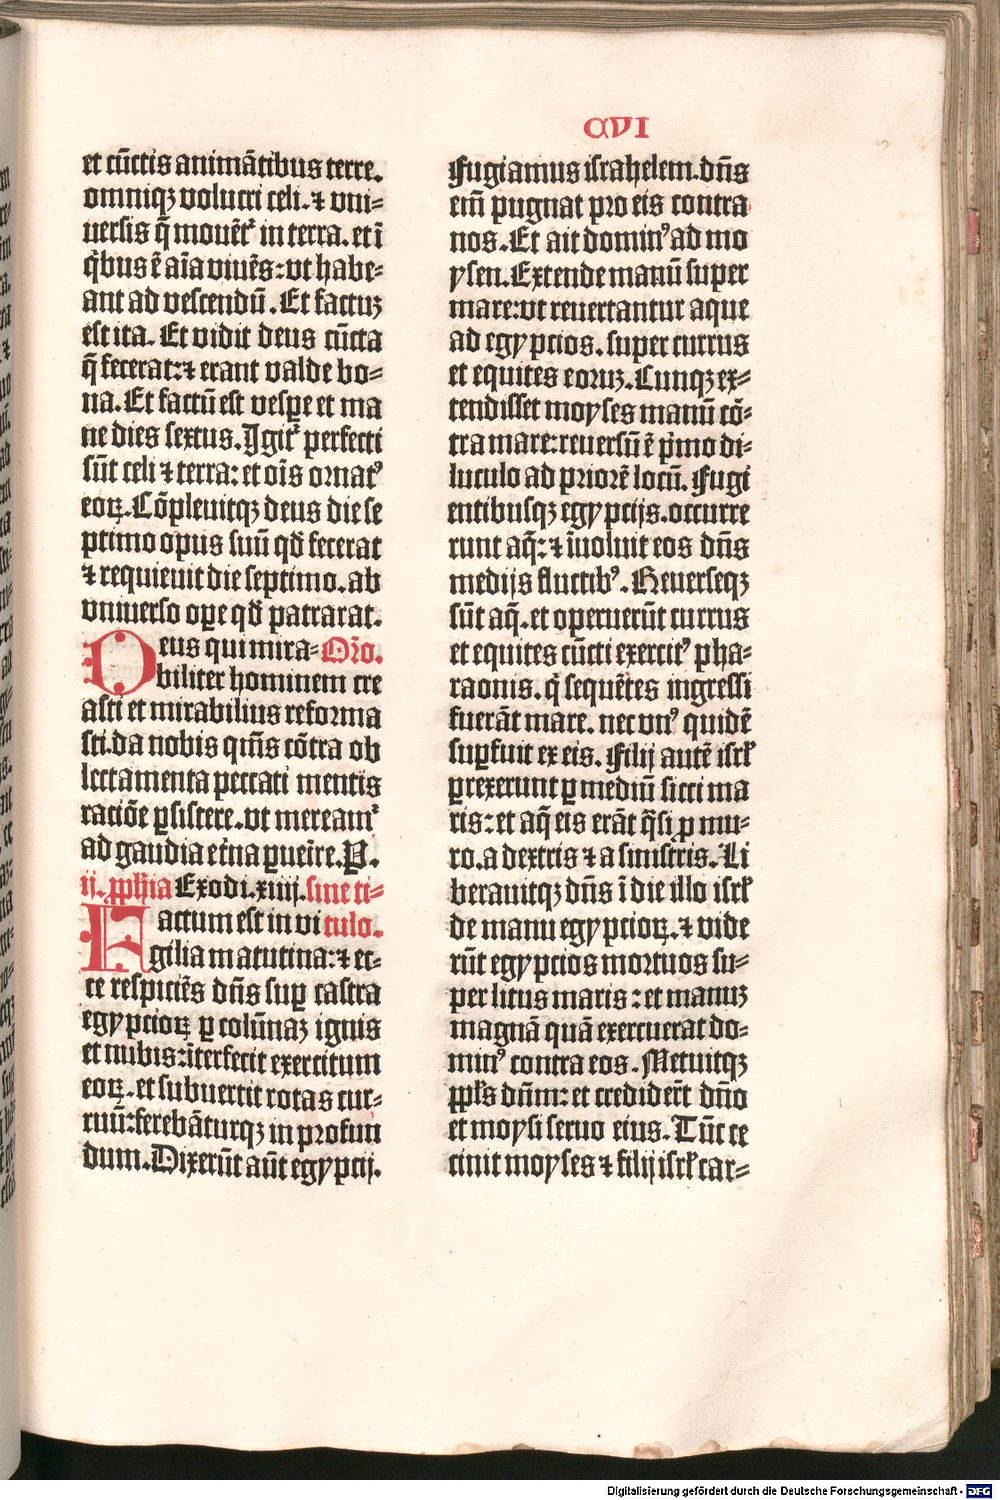 CVI
et cūctis animātibus terre.
omniqꝫ volucri celi. ⁊ vni⸗
uersis q̄ mouēt᷑ in terra. et ī
q̇bus ē aīa viuēs: vt habe⸗
ant ad vescendū. Et factuꝫ
est ita. Et vidit deus cūcta
q̄ fecerat: ⁊ erant valde bo⸗
na. Et factū est vespe et ma
ne dies sextus. Igit᷑ perfecti
sūt celi ⁊ terra: et oīs ornatꝰ
eoꝝ. Cōpleuitqꝫ deus die se
ptimo opus suū qd̄ fecerat
⁊ requieuit die septimo. ab
vniuerso oꝑe qd̄ patrarat.
Deus qui mira⸗ Orō.
biliter hominem cre
asti et mirabilius reforma
sti. da nobis qm̄s cōtra ob
lectamenta peccati mentis
ratiōe ꝑsistere. vt meream᷑
ad gaudia et̄na ꝑueīre. P.
ij. ꝓph̄ia Exodi. xiiij. sine ti⸗
Factum est in vi tulo.
gilia matutina: ⁊ ec⸗
ce respiciēs dn̄s suꝑ castra
egypcioꝝ ꝑ colūnaꝫ ignis
et nubis: īterfecit exercitum
eoꝝ. et subuertit rotas cur⸗
ruū: ferebāturqꝫ in profun
dum. Dixerūt aūt egypcij.
Fugiamus israhelem. dn̄s
eim̄ pugnat pro eis contra
nos. Et ait dominꝰ ad mo
ysen. Extende manū super
mare: vt reuertantur aque
ad egypcios. super currus
et equites eoruꝫ. Cunqꝫ ex⸗
tendisset moyses manū cō⸗
tra mare: reuersū ē p̄mo di⸗
luculo ad priorē locū. Fugi
entibusqꝫ egypcijs. occurre
runt aq̄: ⁊ īuoluit eos dn̄s
medijs fluctibꝰ. Reuerseqꝫ
sūt aq̄. et operuerūt currus
et equites cūcti exercitꝰ pha⸗
raonis. q̇ sequētes ingressi
fuerāt mare. nec vnꝰ quidē
suꝑfuit ex eis. Filij autē isrl̄
ꝑrexerunt ꝑ mediū sicci ma
ris: et aq̄ eis erāt q̄si ꝓ mu⸗
ro. a dextris ⁊ a sinistris. Li
berauitqꝫ dn̄s ī die illo isrl̄
de manu egypcioꝝ. ⁊ vide
rūt egypcios mortuos su⸗
per litus maris: et manuꝫ
magnā quā exercuerat do⸗
minꝰ contra eos. Metuitqꝫ
ppl̄s dn̄m: et crediderūt dn̄o
et moysi seruo eius. Tūc ce
cinit moyses ⁊ filij isrl̄ car⸗
Digitalisierung gefördert durch die Deutsche Forschungsgemeinschaft - DFG